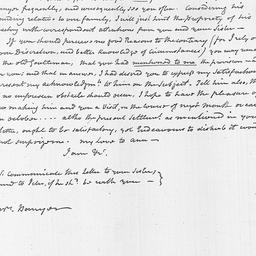 enjoys frequently, and consequently see you often. Considering his
standing relation to our family, I will just hint the propriety of his
with correspondent attentions from you and your Sister —
If you should perceive no good reason to the contrary (for I rely on
your Discretion, and better knowledge of circumstances) you may remark
the old Gentleman, that you had mentioned to me the provision
you: and that in answer, I had desired you to express my satisfaction
present my acknowledgmt. to him on the subject. Tell him also, that
no unforeseen obstacle should occur, I hope to have the pleasure of
making him and you a Visit, in the course of next month or early
in october. . . . altho the present Settlemt. as mentioned in your
letter, ought to be satisfactory, yet Endeavours to disturb it would
not surprize me. my love to ann —
I am &c.
S. Communicate this Letter to your Sister
and to Peter, if he shd. be with you —
Mrs. Munro